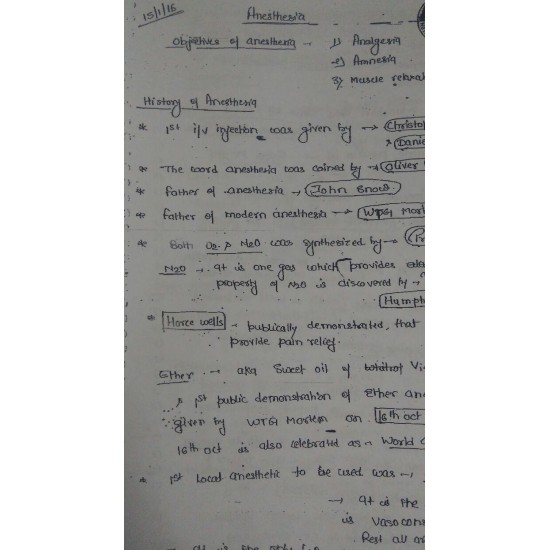 15/1/16
Anesthesia
Objectives of anesthesia → 1) Analgesia
2) Amnesia
3) Muscle relaxa
History of Anesthesia
* 1st i/v injection was given by → Christo
& Danie
* The word anesthesia was coined by → Oliver
* father of anesthesia → John Snow.
* father of modern anesthesia → WTG Mor
* Both O2 & N2O was synthesized by → Pr
N2O → It is one gas which provides
property of N2O is discovered by →
Humph
* Horce wells → publically demonstrated, that
provide pain relief.
Ether → aka Sweet oil of Vi
1st public demonstration of Ether an
given by WTG Morton on 16th oct
16th oct is also celebrated as World
* 1st Local anesthetic to be used was →
→ It is the
is Vasocon
Rest all a